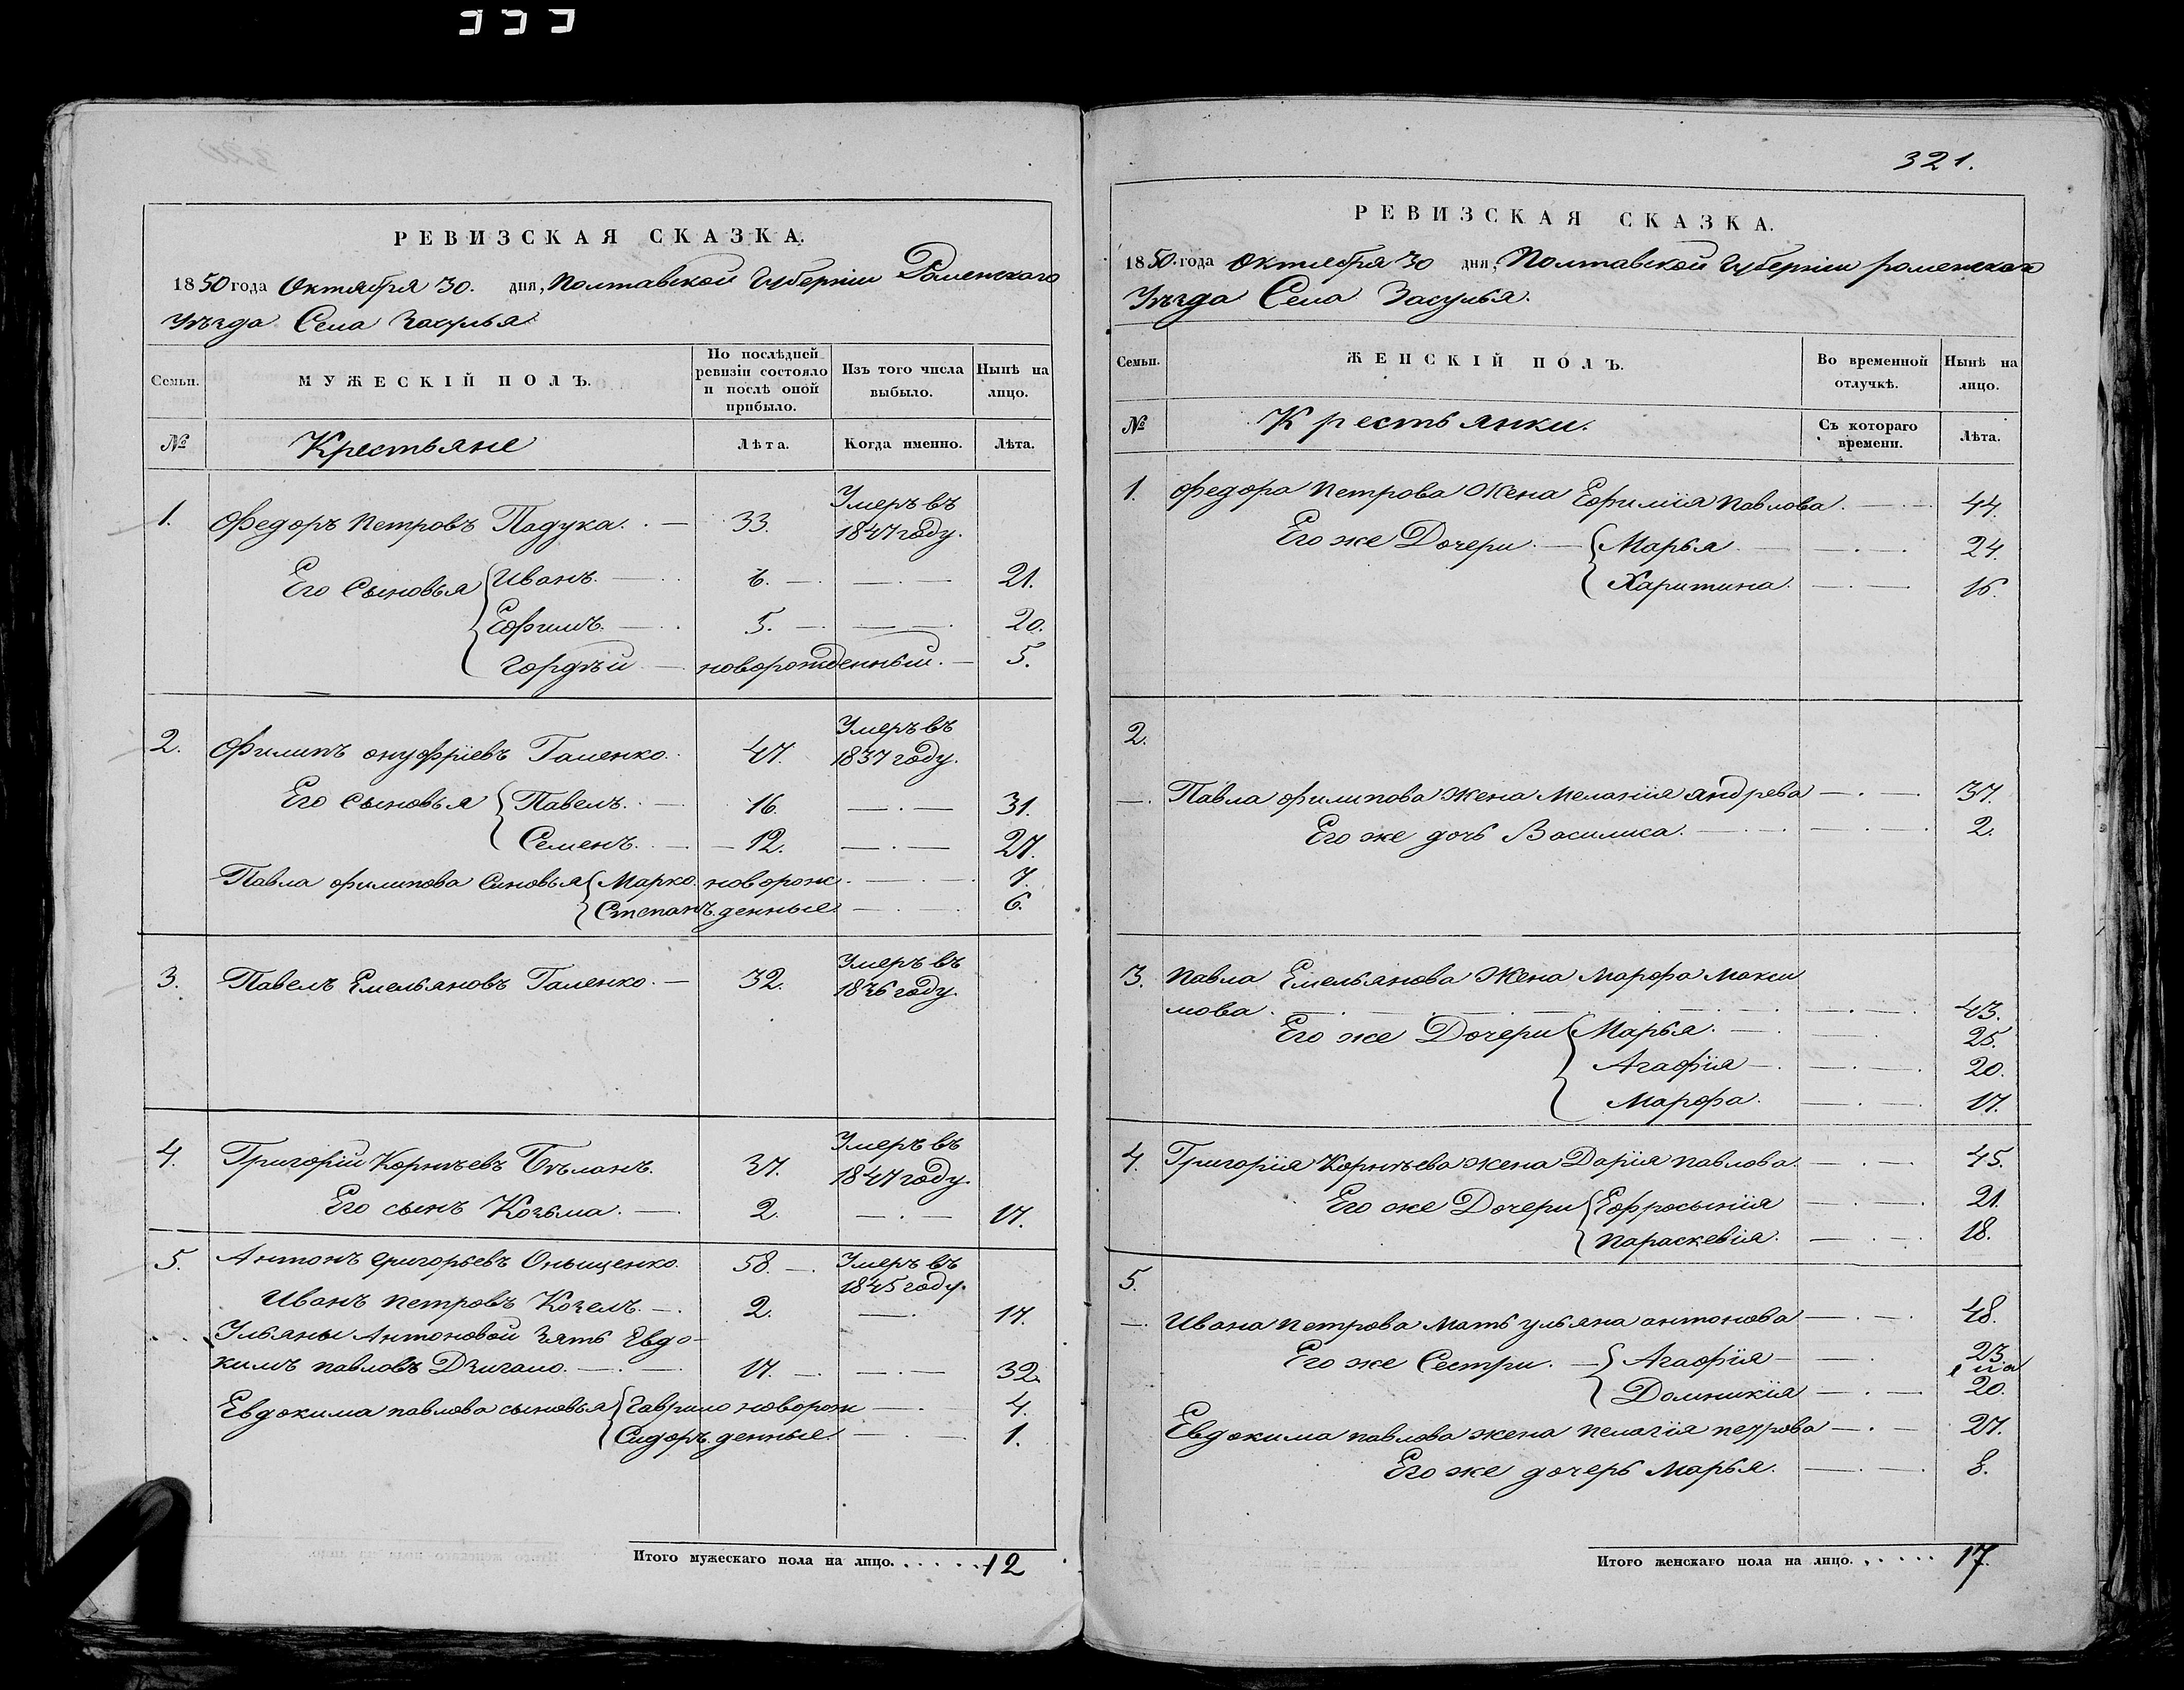 321.
РЕВИЗСКАЯ СКАЗКА.
1850 года Октября 30. дня, Полтавской Губерніи Роменскаго
Уѣзда Села Засулья
Семьи. МУЖЕСКІЙ ПОЛЪ. По послѣдней ревизіи состояло и послѣ оной прибыло. Изъ того числа выбыло. Нынѣ на лицо.
№ Крестьяне Лѣта. Когда именно. Лѣта.
1. Федоръ Петровъ Падука. 33. Умеръ въ 1847 году.
Его Сыновья Иванъ. 6. 21.
Ефимъ. 5. 20.
Гордѣй новорожденный. 5.
2. Филипъ онуфріевъ Галенко. 47. Умеръ въ 1837 году.
Его Сыновья Павелъ. 16. 31.
Семенъ. 12. 27.
Павла филипова Синовья Марко новорож 7.
Степанъ. денные. 6.
3. Павелъ Емельяновъ Галенко. 32. Умеръ въ 1836 году.
4. Григорій Корнѣевъ Бѣланъ. 37. Умеръ въ 1847 году.
Его сынъ Козьма. 2. 17.
5. Антонъ григорьевъ Онищенко. 58. Умеръ въ 1845 году.
Иванъ Петровъ Козелъ. 2. 17.
Ульяны Антоновой зять Евдо-
кимъ павловъ Дзигало. 17. 32.
Евдокима павлова сыновья Гаврило новорож 4.
Сидоръ. денные. 1.
Итого мужескаго пола на лицо. 12
РЕВИЗСКАЯ СКАЗКА.
1850 года Октября 30 дня, Полтавской Губерніи роменскаго
Уѣзда Села Засулья.
Семьи. ЖЕНСКІЙ ПОЛЪ. Во временной отлучкѣ. Нынѣ на лицо.
№ Крестьянки. Съ котораго времени. Лѣта.
1. Федора Петрова Жена Ефимія Павлова. 44.
Его же Дочери. Марья 24.
Харитина. 16.
2.
Павла филипова Жена Меланія андрева 37.
Его же дочь Василиса. 2.
3. Павла Емельянова Жена Марфа Макси
мова. 43.
Его же Дочери Марья. 25.
Агафія 20.
Марфа. 17.
4. Григорія Корнѣева жена Дарія павлова. 45.
Его же Дочери Ефросынія 21.
Параскевія. 18.
5.
Ивана Петрова Мать ульяна антонова 48.
Его же Сестри. Агафія 23.
Домникія 20.
Евдокима павлова жена пелагія петрова 27.
Его же дочерь Марья. 8.
Итого женскаго пола на лицо. 17.